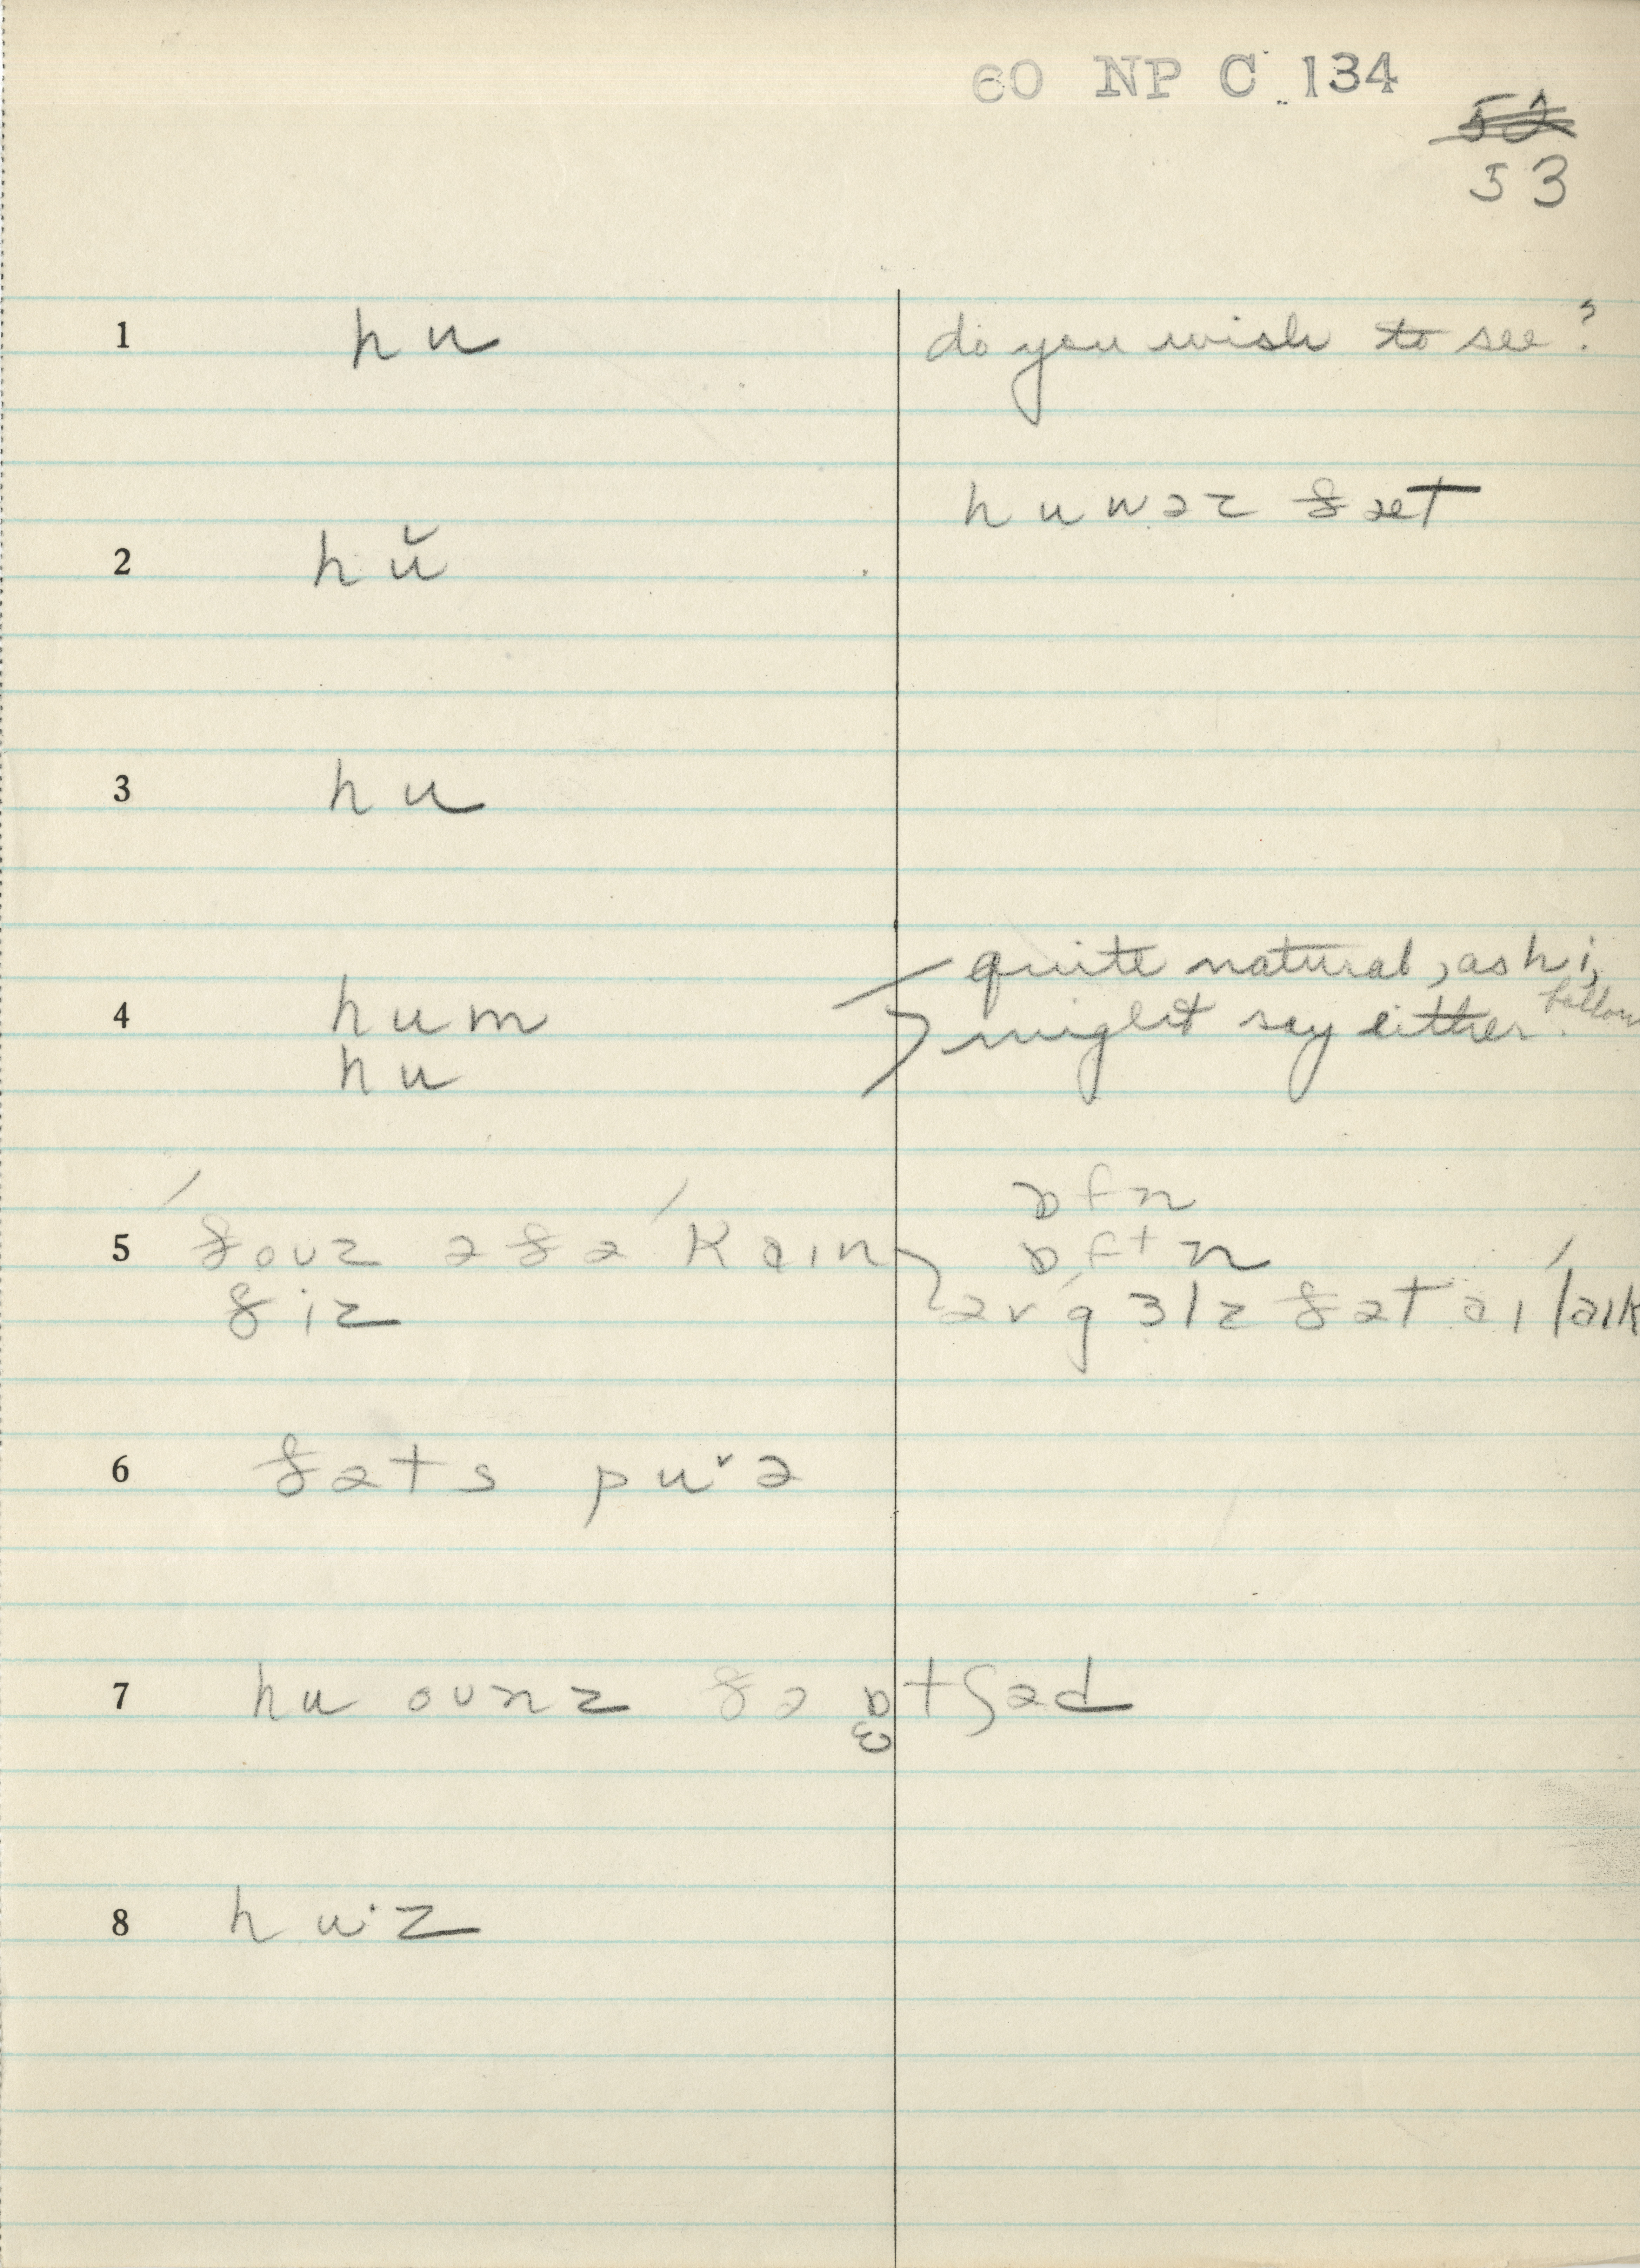 60 NP C 134
52
53
1 hu do you wish to see?
huwəz ðæt
2 hŭ
3 hu
4 hum quite natural, as hi,
hu might say either. follows
5 ˈðoʊz ə ðə ˈkɑɪn ɒfn
ðiz ɒftn
ər ˈgɜlz ðət ɑɪ ˈlɑɪk
6 ðəts puˑə
7 hu oʊnz ðə ɒtʃəd
ɜ
8 huˑz